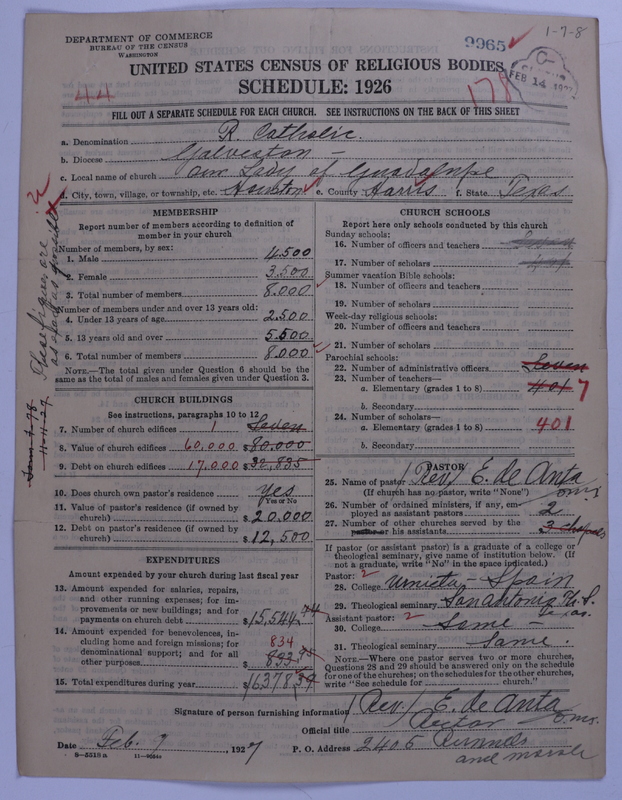 DEPARTMENT OF COMMERCE
BUREAU OF THE CENSUS
WASHINGTON
1-7-8
9965
FEB 14 1927
UNITED STATES CENSUS OF RELIGIOUS BODIES
SCHEDULE: 1926
44
178
FILL OUT A SEPARATE SCHEDULE FOR EACH CHURCH. SEE INSTRUCTIONS ON THE BACK OF THIS SHEET
a. Denomination R. Catholic.
b. Diocese Galveston –
c. Local name of church Our Lady of Guadalupe
d. City, town, village, or township, etc. Houston e. County Harris f. State Texas
These figures are as exact as possible
MEMBERSHIP
Report number of members according to definition of
member in your church
Number of members, by sex:
1. Male 4.500
2. Female 3.500
3. Total number of members 8.000
Number of members under and over 13 years old:
4. Under 13 years of age 2.500
5. 13 years old and over 5.500
6. Total number of members 8.000
NOTE.—The total given under Question 6 should be
the same as the total of males and females given under Question 3.
CHURCH BUILDINGS
See instructions, paragraphs 10 to 12
7. Number of church edifices 1 Seven
8. Value of church edifices 60,000 $80.000
9. Debt on church edifices 17,000 $32,835
10. Does church own pastor's residence Yes
Yes or No
11. Value of pastor's residence (if owned by
church) $20.000
12. Debt on pastor's residence (if owned by
church) $12,500
EXPENDITURES
Amount expended by your church during last fiscal year
13. Amount expended for salaries, repairs,
and other running expenses; for im-
provements or new buildings; and for
payments on church debt $15,544 44
14. Amount expended for benevolences, in-
cluding home and foreign missions; for
denominational support; and for all
other purposes 834 $833.
15. Total expenditures during year $16378,39
CHURCH SCHOOLS
Report here only schools conducted by this church
Sunday schools:
16. Number of officers and teachers
17. Number of scholars
Summer vacation Bible schools:
18. Number of officers and teachers
19. Number of scholars
Week-day religious schools:
20. Number of officers and teachers
21. Number of scholars
Parochial schools:
22. Number of administrative officers Seven
23. Number of teachers—
a. Elementary (grades 1 to 8) 401 7
b. Secondary
24. Number of scholars—
a. Elementary (grades 1 to 8) 401
b. Secondary
PASTOR
25. Name of pastor (Rev) E. de Anta
(If church has no pastor, write "None") omi
26. Number of ordained ministers, if any, em-
ployed as assistant pastors 2
27. Number of other churches served by the
pastor or his assistants 3 chapels
If pastor (or assistant pastor) is a graduate of a college or
theological seminary, give name of institution below. (If
not a graduate, write "No" in the space indicated.)
Pastor: 2
28. College Urnieta – Spain
29. Theological seminary San Antonio U.S. Texas.
Assistant pastor: 2
30. College Same –
31. Theological seminary Same.
NOTE.—Where one pastor serves two or more churches,
Questions 28 and 29 should be answered only on the schedule
for one of the churches; on the schedules for the other churches,
write "See schedule for church."
Signature of person furnishing information (Rev) E. de Anta omi.
Official title Rector
Date Feb. 9 1927 P. O. Address 2405 Runnels
and
8—5513a